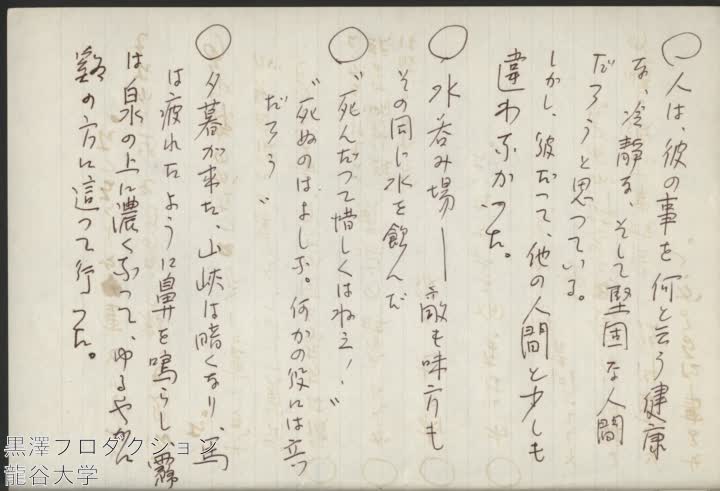 ○人は、彼の事を何と云う健康
な、冷静な、そして堅固な人間
だろうと思っている。
しかし、彼だって、他の人間と少しも
違わなかった。
○水呑み場──敵も味方も
その同じ水を飲んだ
○“死んだって惜しくはねえ、”
“死ぬのはよしな。何かの役には立つ
だろう”
○夕暮が来た、山峡は暗くなり、馬
は疲れたように鼻を鳴らし、霧
は泉の上に濃くなって、ゆるやかに
谿の方に這って行った。
黒澤プロダクション
龍谷大学